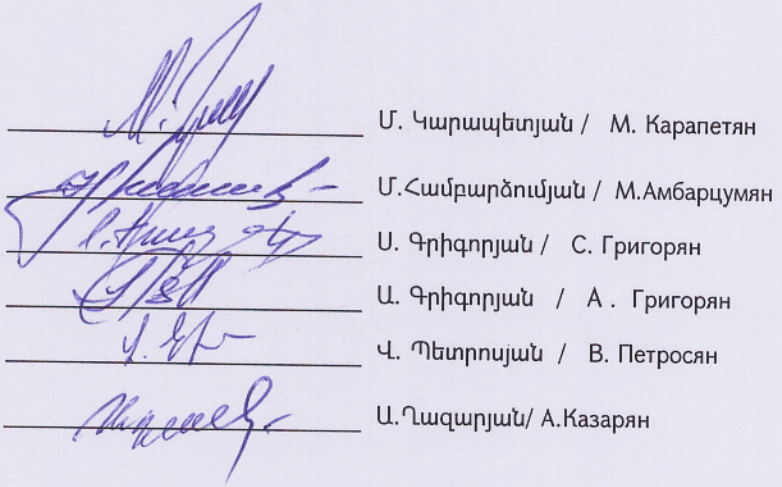 Մ. Կարապետյան / М. Карапетян
Մ.Համբարձումյան / М.Амбарцумян
Ս. Գրիգորյան / С. Григорян
Ա. Գրիգորյան / А . Григорян
Վ. Պետրոսյան / В. Петросян
Ա.Ղազարյան/ А.Казарян